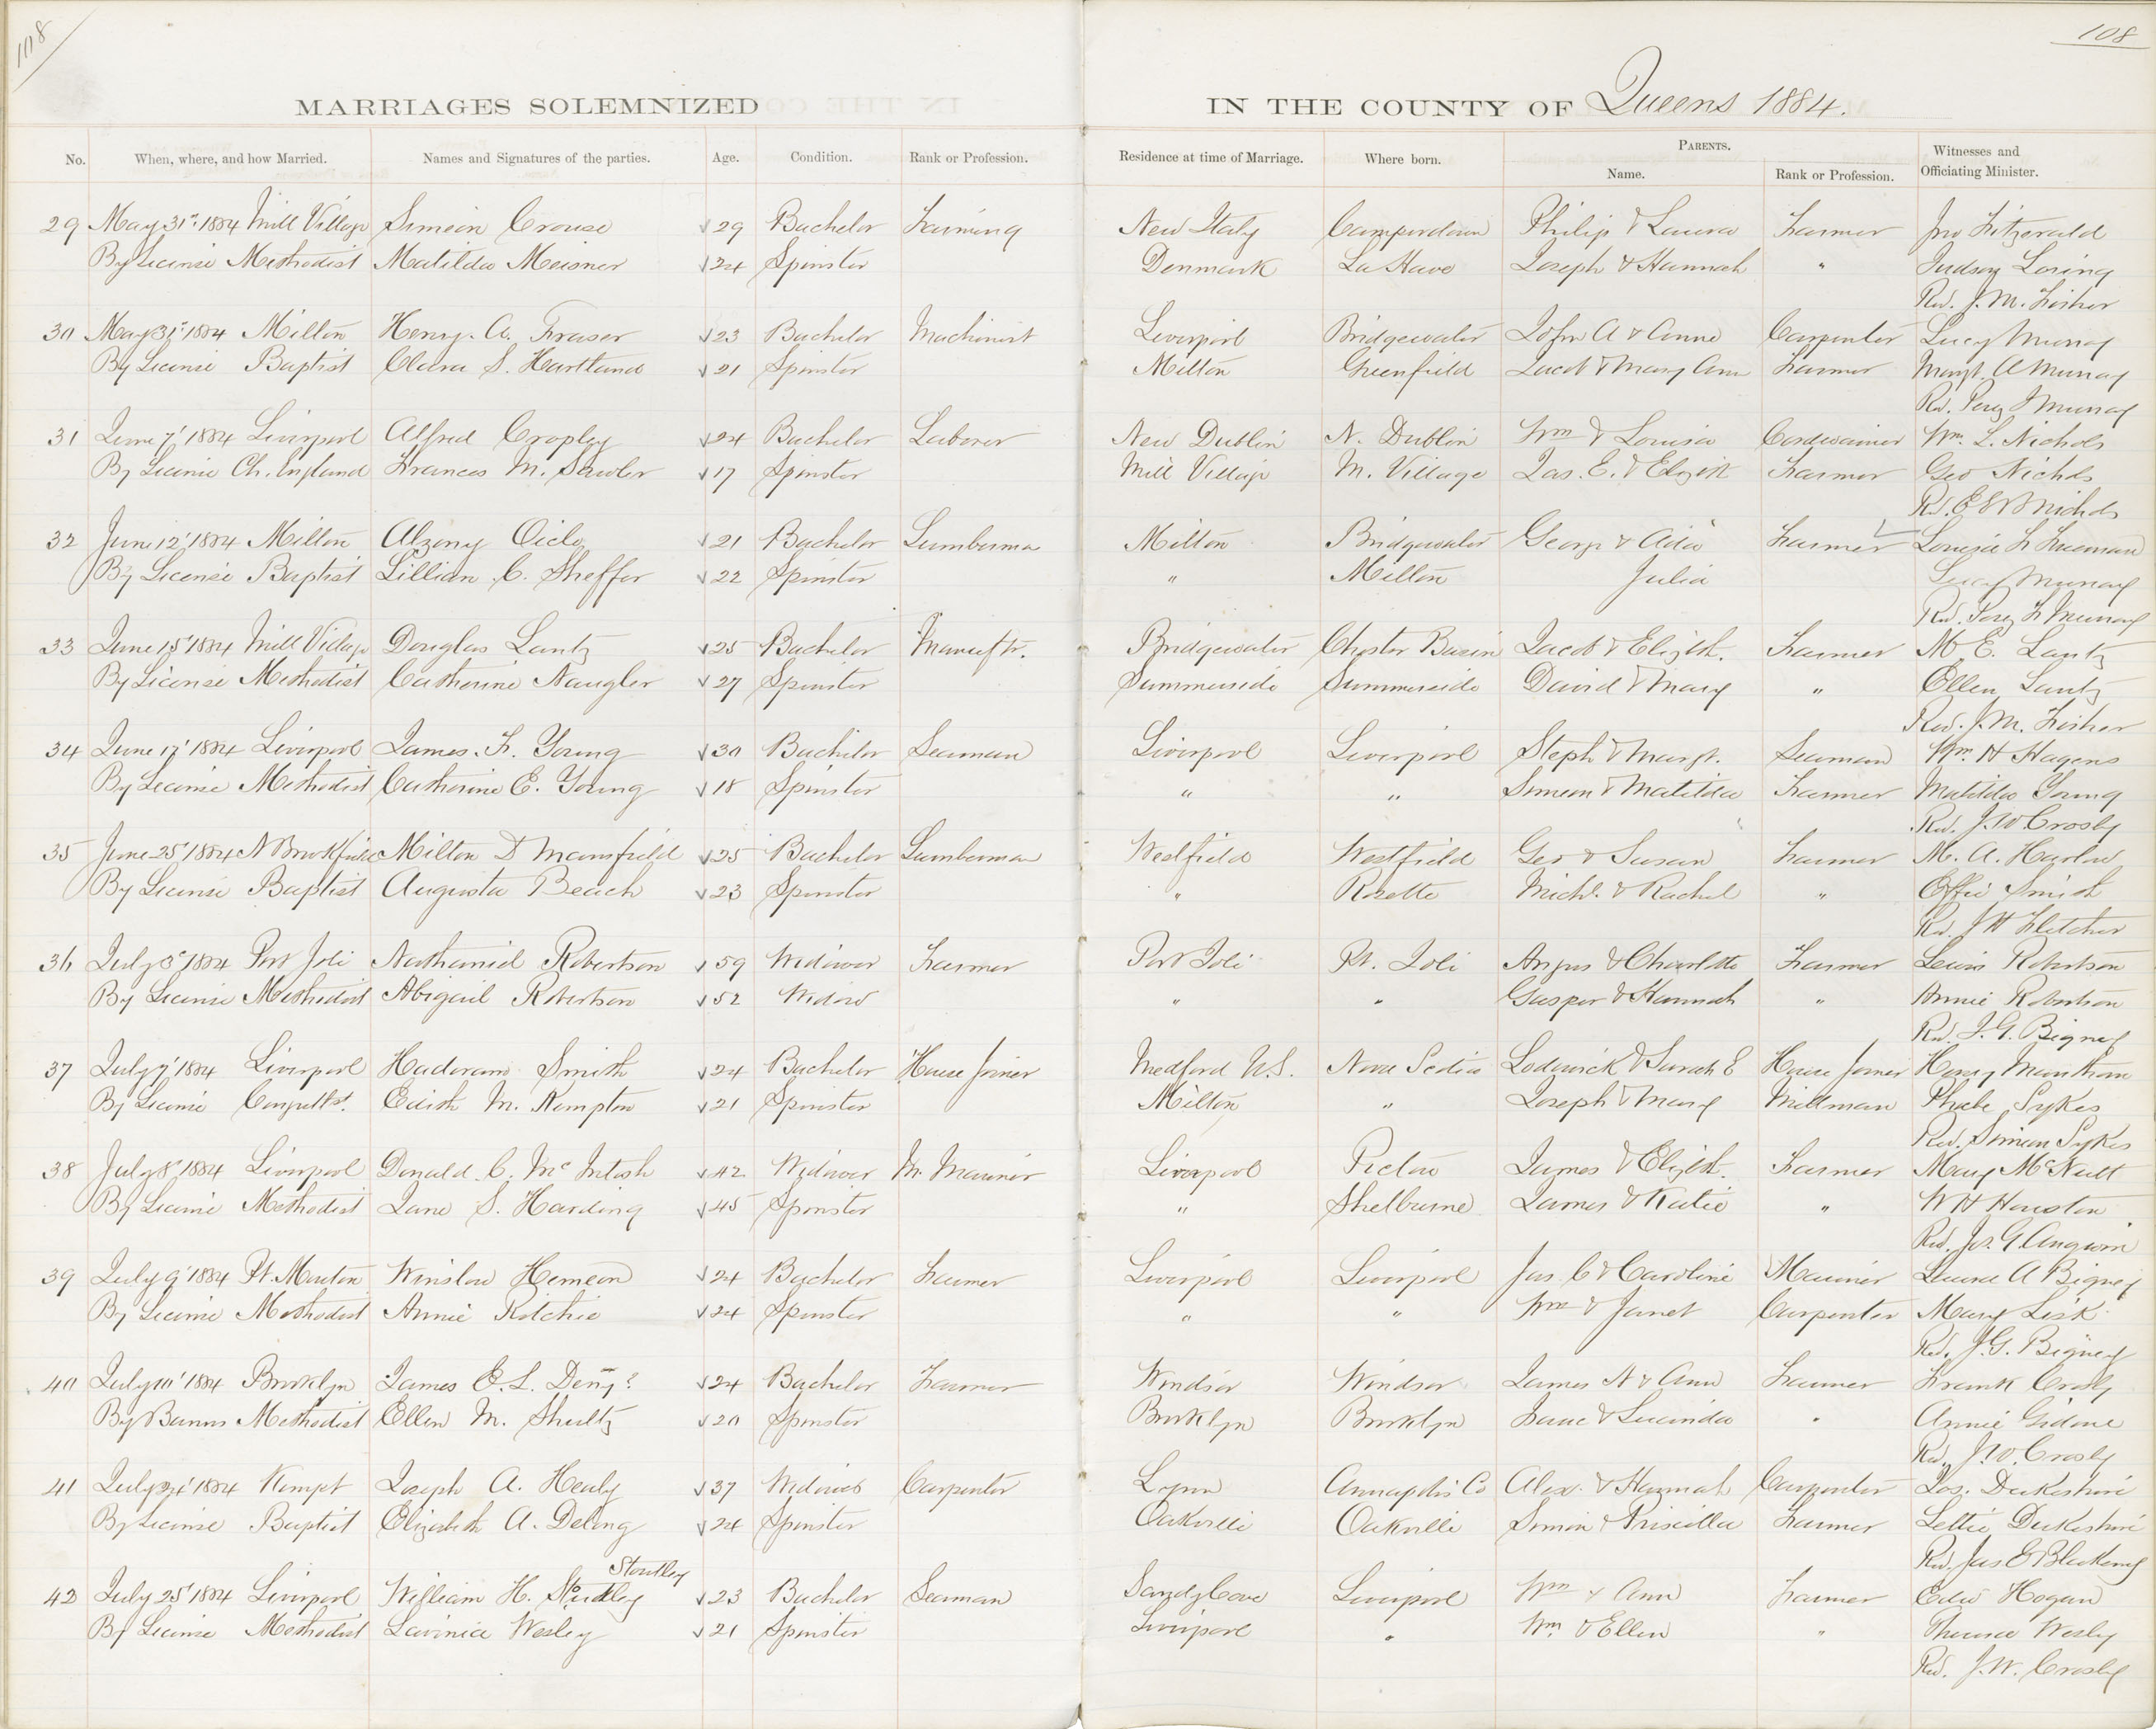 108
108
MARRIAGES SOLEMNIZED IN THE COUNTY OF Queens 1884.
No. When, where, and how Married. Names and Signatures of the parties. Age. Condition. Rank or Profession. Residence at time of Marriage. Where born. PARENTS. Name. Rank or Profession. Witnesses and Officiating Minister.
29 May 31st 1884 Mill Village Simeon Crouse 29 Bachelor Farming New Italy Camperdown Philip & Laura Farmer Jno Fitzerald
By License Methodist Matilda Meisner 24 Spinster Denmark La Have Joseph & Hannah " Judson Loring
Rev. J. M. Fisher
30 May 31st 1884 Milton Henry. A. Fraser 23 Bachelor Machinist Liverpool Bridgewater John A & Anne Carpenter Lucy Murray
By License Baptist Clara S. Hartland 21 Spinster Milton Greenfield Jacob & Mary Ann Farmer Margt. A Murray
Rev. Perez F Murray
31 June 7' 1884 Liverpool Alfred Cropley 24 Bachelor Laborer New Dublin N. Dublin Wm & Louisa Cordwainer Wm. L. Nichols
By License Ch. England Frances M. Sawler 17 Spinster Mill Village M. Village Jas. E. & Elizth Farmer Geo Nichols
Rev. E E B Nichols
32 June 12' 1884 Milton Alzeny Oicle 21 Bachelor Lumberma Milton Bridgewater George & Ada Farmer Louisa F Freeman
By License Baptist Lillian C. Sheffer 22 Spinster " Milton Julia Lucy Murray
Rev. Perez F Murray
33 June 15' 1884 Mill Village Douglas Lantz 25 Bachelor Manuftr. Bridgewater Chester Basin Jacob & Elizth. Farmer M. E. Lantz
By License Methodist Catherine Naugler 27 Spinster Summerside Summerside David & Mary " Ellen Lantz
Rev. J. M. Fisher
34 June 17' 1884 Liverpool James. F. Young 30 Bachelor Seaman Liverpool Liverpool Steph & Margt. Seaman Wm. H Hagens
By License Methodist Catherine E. Young 18 Spinster " " Simeon & Matilda Farmer Matilda Young
Rev. J. W Crosby
35 June 25' 1884 N Brookfield Milton D Mansfield 25 Bachelor Lumberman Westfield Westfield Geo & Susan Farmer M. A. Harlow
By License Baptist Augusta Beach 23 Spinster " Rosette Michl. & Rachel " Effie Smith
Rev. J H Fletcher
36 July 3' 1884 Port Joli Nathaniel Robertson 59 Widower Farmer Port Joli Pt. Joli Angus & Charlotte Farmer Lewis Robertson
By License Methodist Abigail Robertson 52 Widow " " Gasper & Hannah " Annie Robertson
Rev. J. G. Bigney
37 July 7' 1884 Liverpool Hadoram Smith 24 Bachelor House Joiner Medford U.S. Nova Scotia Lodowick & Sarah E House Joiner Henry Mantham
By License Congettst. Edith M. Kempton 21 Spinster Milton " Joseph & Mary Millman Phebe Sykes
Rev. Simeon Sykes
38 July 8' 1884 Liverpool Donald C. McIntosh 42 Widower M. Mariner Liverpool Pictou James & Elizth. Farmer Mary McNutt
By License Methodist Jane S. Harding 45 Spinster " Shelburne James & Katie " W H Houston
Rev. Jos. G Angwin
39 July 9' 1884 Pt. Mouton Winslow Hemeon 24 Bachelor Farmer Liverpool Liverpool Jas. C & Caroline Mariner Laura A Bigney
By License Methodist Annie Ritchie 24 Spinster " " Wm & Janet Carpenter Mary Lisk
Rev. J. G. Bigney
40 July 10' 1884 Brooklyn James E. L. Deny? 24 Bachelor Farmer Windsor Windsor James N & Ann Farmer Frank Crosby
By Banns Methodist Ellen M. Shultz 20 Spinster Brooklyn Brooklyn Isaac & Lucinda " Annie
Rev. J. W. Crosby
41 July 24' 1884 Kempt Joseph A. Healy 37 Widower Carpenter Lynn Annapolis Co Alex. & Hannah Carpenter Jos. Dukeshire
By License Baptist Elizabeth A. Delong 24 Spinster Oakville Oakville Simon & Priscilla Farmer Lettie Dukeshire
Rev. Jas E Blakeney
Stoutley
42 July 25' 1884 Liverpool William H. Stoudley 23 Bachelor Seaman Sandy Cove Liverpool Wm & Ann Farmer Edw Hogan
By License Methodist Lavinia Wesley 21 Spinster Liverpool " Wm & Ellen " Wesley
Rev. J. W. Crosby